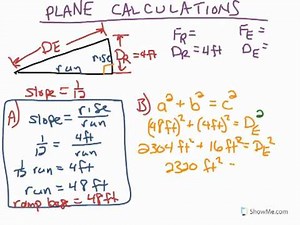 PLANE CALCULATIONS
D_E
rise
D_R = 4ft
run
slope = 1/12
F_R =
F_E =
D_R = 4ft
D_E =
A)
slope = rise/run
1/12 = 4ft/run
run = 48ft
ramp base = 48ft
B) a² + b² = c²
(48ft)² + (4ft)² = D_E²
2304ft² + 16ft² = D_E²
2320 ft² =
ShowMe.com